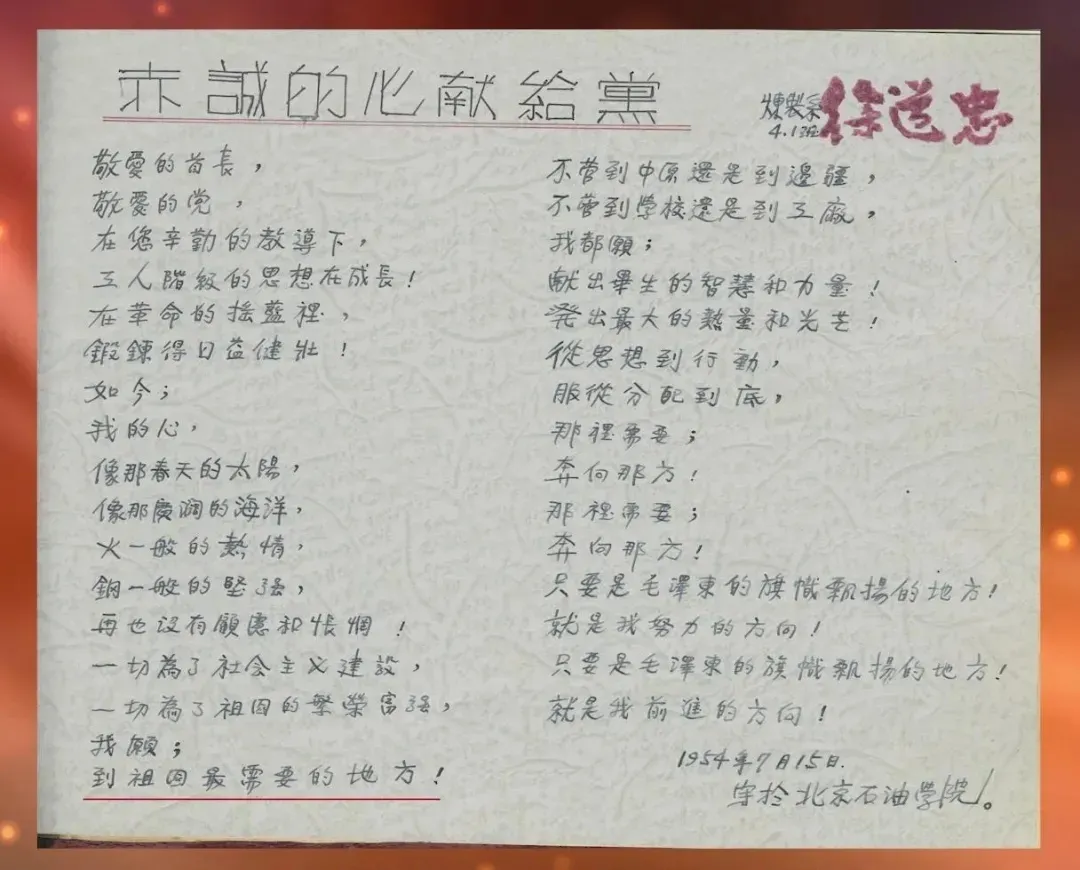 赤誠的心献給黨
煉製系
4.1班
徐送忠
敬愛的首長，
敬愛的党，
在您辛勤的教導下，
工人階級的思想在成長！
在革命的摇藍裡，
鍛鍊得日益健壯！
如今；
我的心，
像那春天的太陽，
像那廣濶的海洋，
火一般的熱情，
鋼一般的堅强，
再也没有顧慮和悵惘！
一切為了社会主义建設，
一切為了祖国的繁榮富强，
我願；
到祖国最需要的地方！
不管到中原還是到邊疆，
不管到學校還是到工廠，
我都願；
献出畢生的智慧和力量！
発出最大的熱量和光芒！
從思想到行動，
服從分配到底，
那裡需要；
奔向那方！
那裡需要；
奔向那方！
只要是毛澤東的旗幟飄揚的地方！
就是我努力的方向！
只要是毛澤東的旗幟飄揚的地方！
就是我前進的方向！
1954年7月15日.
写於北京石油學院。